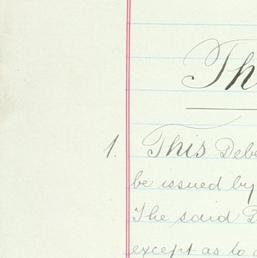 Th
1. This Debe
be issued by
The said D
except as to